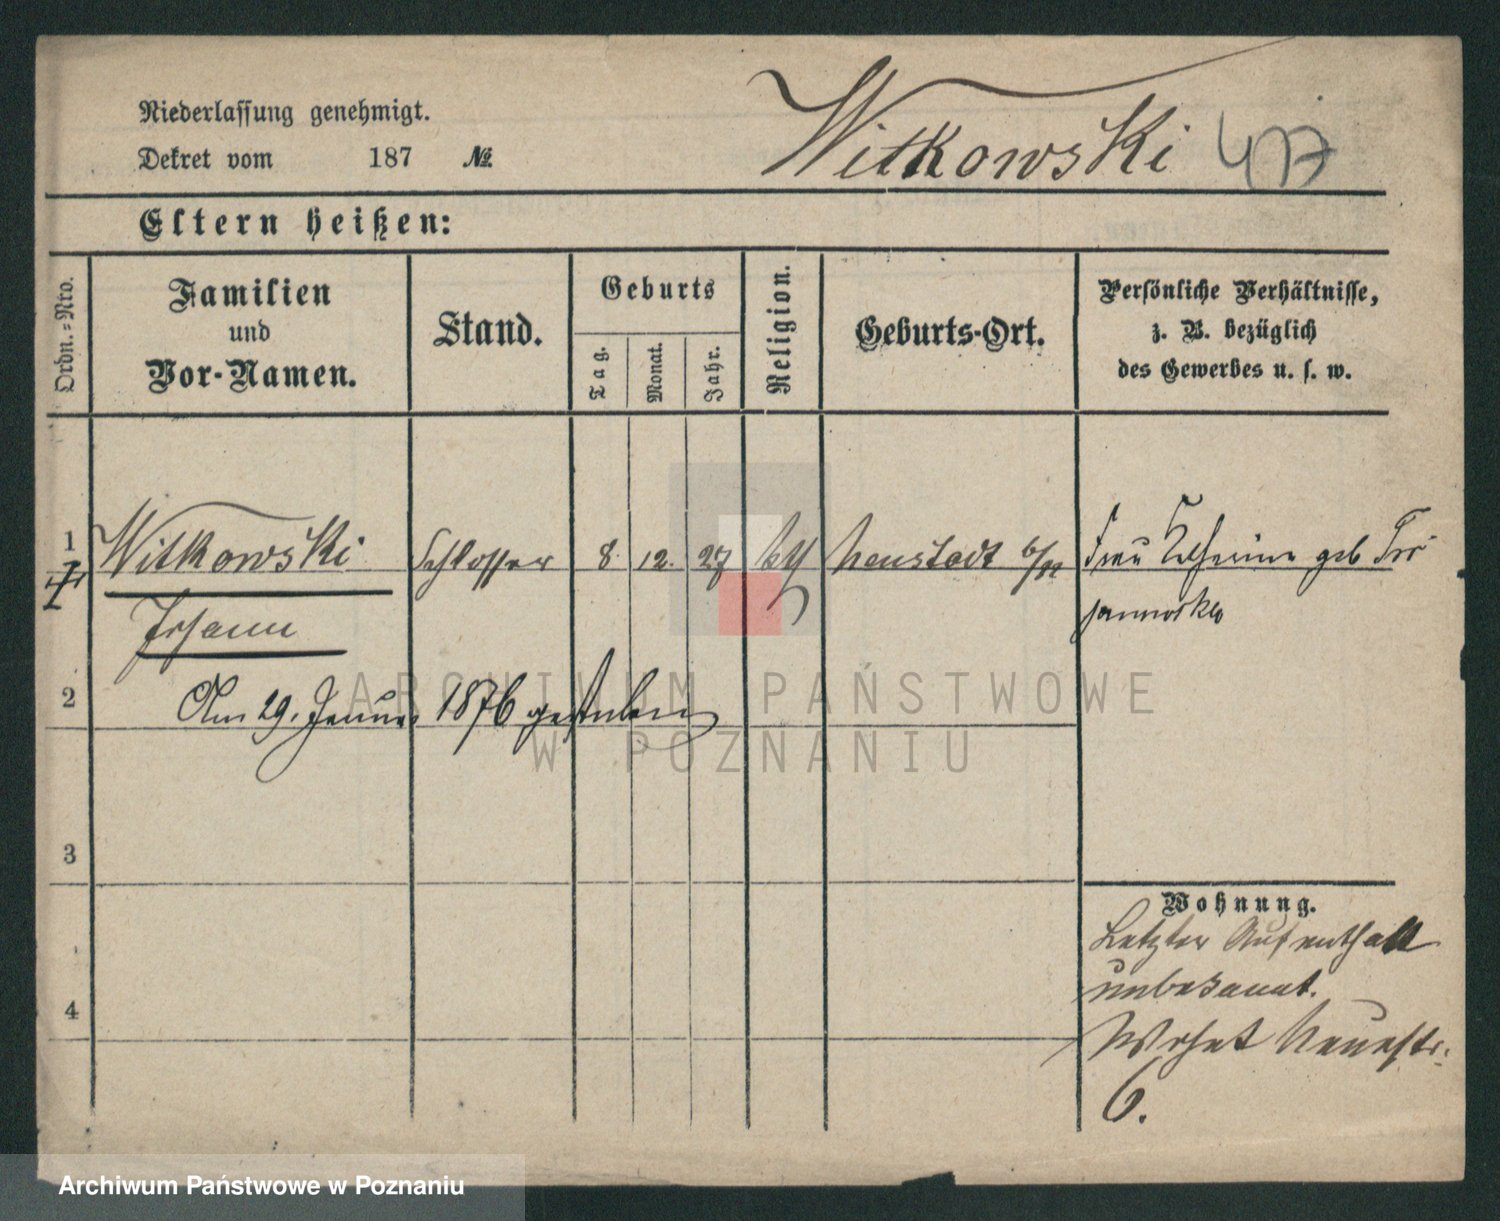 Niederlassung genehmigt.
Dekret vom 187 №
Witkowski 417
Eltern heißen:
Ordn.=Nro.
Familien
und
Vor-Namen.
Stand.
Geburts
Tag.
Monat.
Jahr.
Religion.
Geburts-Ort.
Persönliche Verhältnisse,
z. B. bezüglich
des Gewerbes u. s. w.
1 Witkowski Schlosser 8. 12. 27 kth Neustadt b/ Frau Catharina geb
Johann
2 Am 29. Januar 1876 gestorben
ARCHIWUM PAŃSTWOWE
W POZNANIU
3
Wohnung.
Letzter Aufenthalt
unbekannt.
4 Wohnt Neuestr.
6.
Archiwum Państwowe w Poznaniu